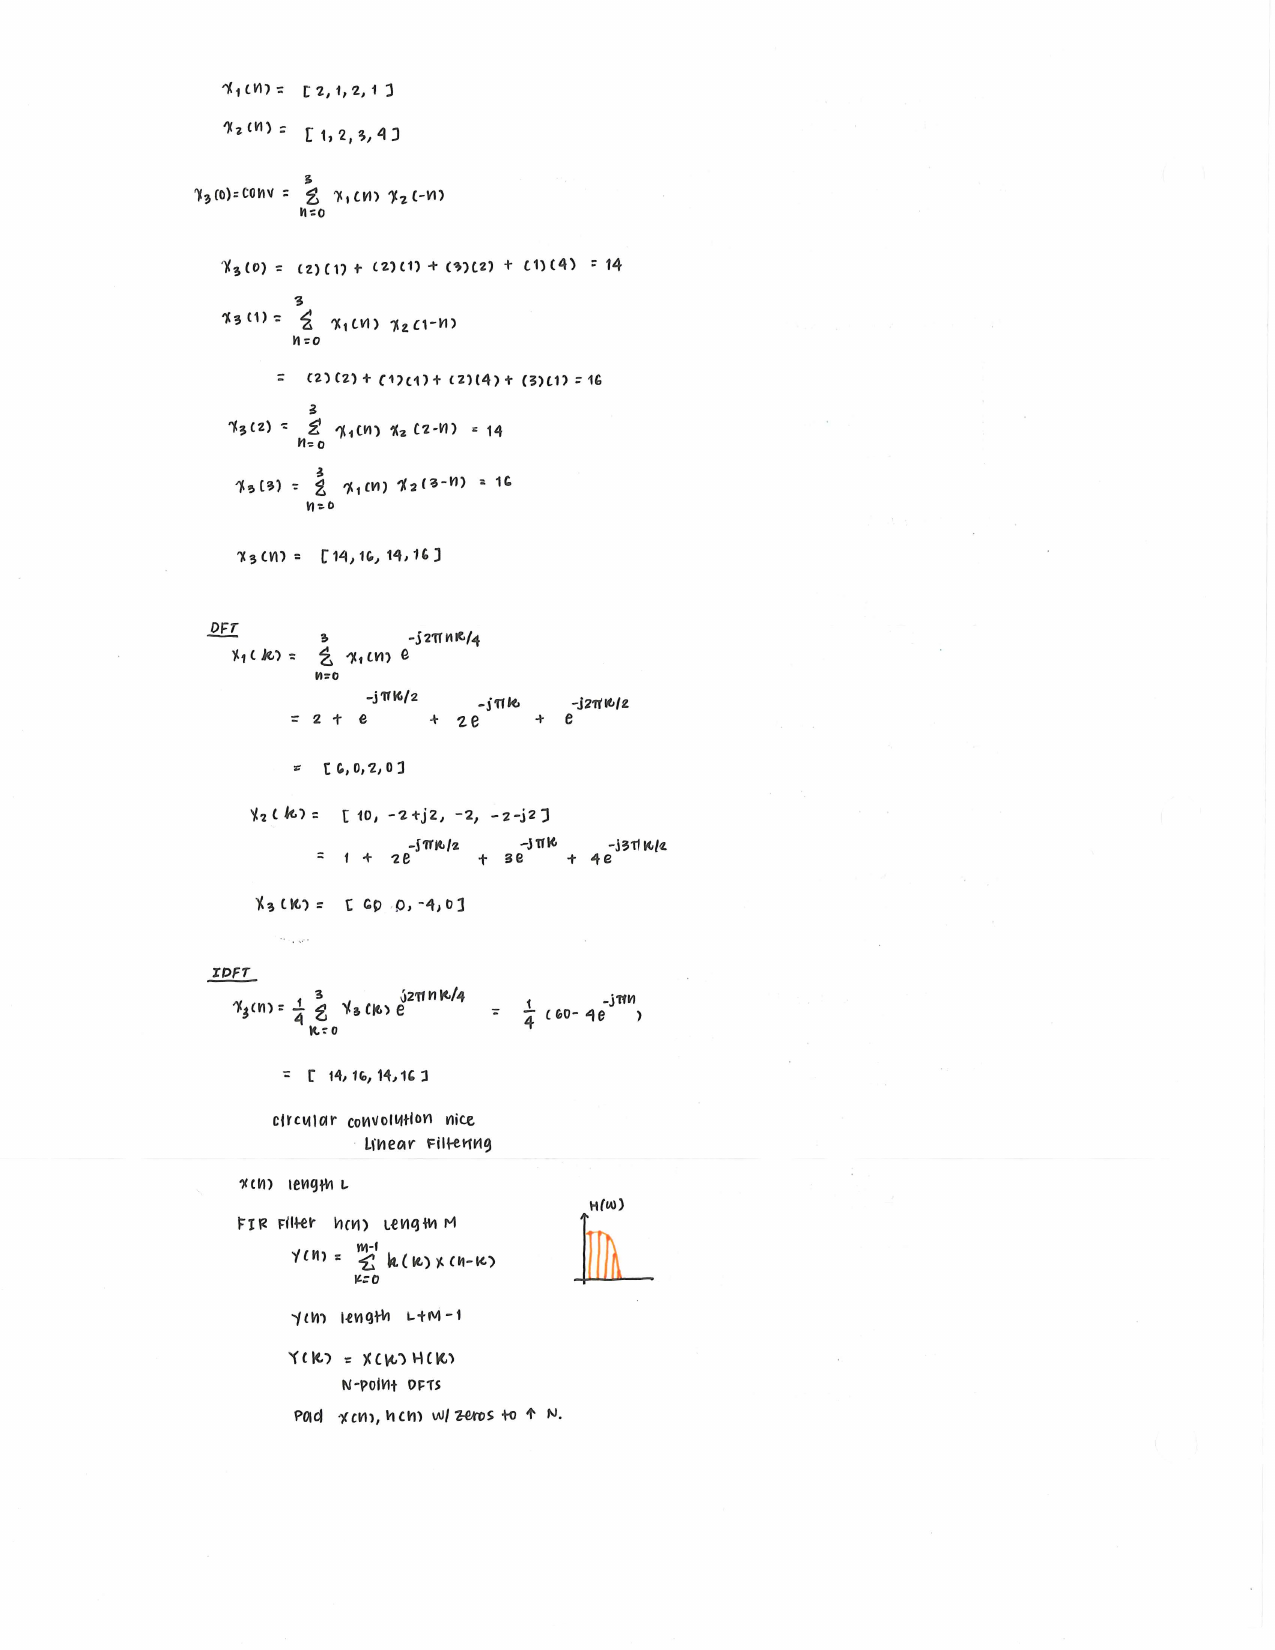 x₁(n) = [2, 1, 2, 1]
x₂(n) = [1, 2, 3, 4]
x₃(0) = conv = ∑_{n=0}^{3} x₁(n) x₂(-n)
x₃(0) = (2)(1) + (2)(1) + (3)(2) + (1)(4) = 14
x₃(1) = ∑_{n=0}^{3} x₁(n) x₂(1-n)
= (2)(2) + (1)(1) + (2)(4) + (3)(1) = 16
x₃(2) = ∑_{n=0}^{3} x₁(n) x₂(2-n) = 14
x₃(3) = ∑_{n=0}^{3} x₁(n) x₂(3-n) = 16
x₃(n) = [14, 16, 14, 16]
DFT
X₁(k) = ∑_{n=0}^{3} x₁(n) e^{-j2πnk/4}
= 2 + e^{-jπk/2} + 2e^{-jπk} + e^{-j2πk/2}
= [6, 0, 2, 0]
X₂(k) = [10, -2+j2, -2, -2-j2]
= 1 + 2e^{-jπk/2} + 3e^{-jπk} + 4e^{-j3πk/2}
X₃(k) = [60 0, -4, 0]
IDFT
x₃(n) = 1/4 ∑_{k=0}^{3} X₃(k) e^{j2πnk/4} = 1/4 (60 - 4e^{-jπn})
= [14, 16, 14, 16]
circular convolution nice
Linear Filtering
x(n) length L
H(ω)
FIR Filter h(n) Length M
Y(n) = ∑_{k=0}^{m-1} h(k) x(n-k)
Y(n) length L+M-1
Y(k) = X(k) H(k)
N-point DFTs
Pad x(n), h(n) w/ zeros to ↑ N.